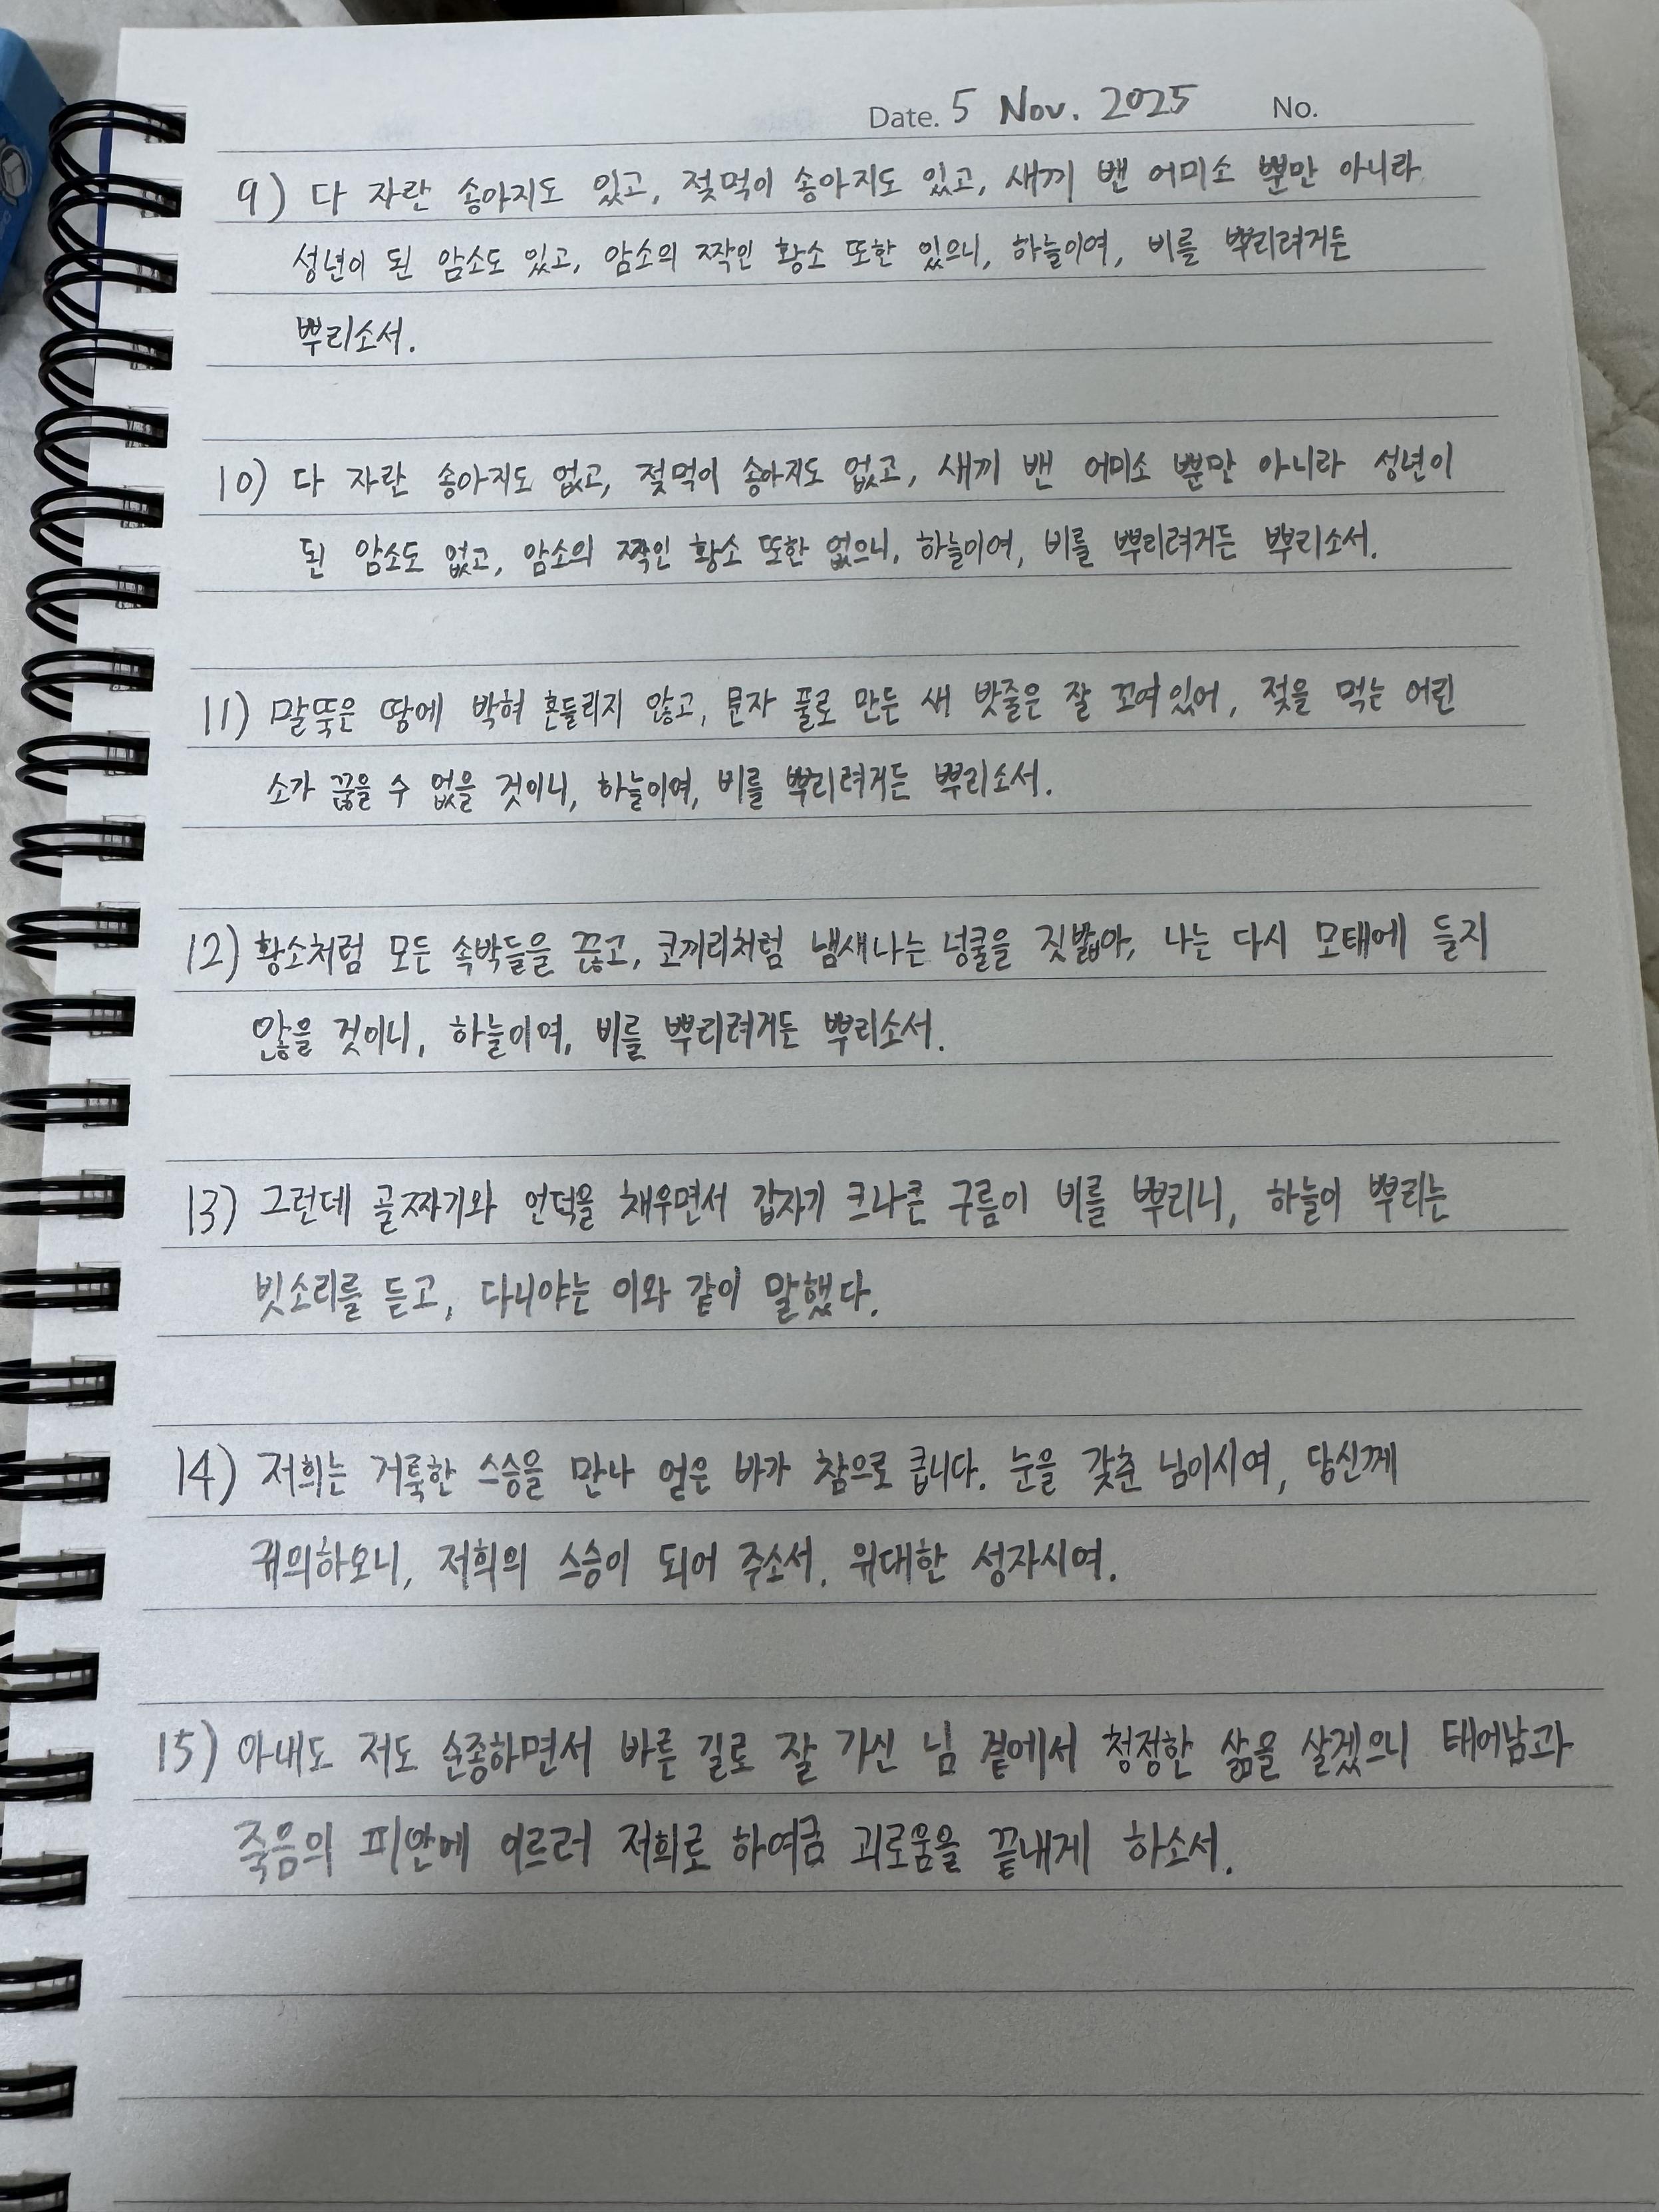 Date. 5 Nov. 2025 No.
9) 다 자란 송아지도 있고, 젖먹이 송아지도 있고, 새끼 밴 어미소 뿐만 아니라
성년이 된 암소도 있고, 암소의 짝인 황소 또한 있으니, 하늘이여, 비를 뿌리려거든
뿌리소서.
10) 다 자란 송아지도 없고, 젖먹이 송아지도 없고, 새끼 밴 어미소 뿐만 아니라 성년이
된 암소도 없고, 암소의 짝인 황소 또한 없으니, 하늘이여, 비를 뿌리려거든 뿌리소서.
11) 말뚝은 땅에 박혀 흔들리지 않고, 문자 풀로 만든 새 밧줄은 잘 꼬여있어, 젖을 먹는 어린
소가 끊을 수 없을 것이니, 하늘이여, 비를 뿌리려거든 뿌리소서.
12) 황소처럼 모든 속박들을 끊고, 코끼리처럼 냄새나는 넝쿨을 짓밟아, 나는 다시 모태에 들지
않을 것이니, 하늘이여, 비를 뿌리려거든 뿌리소서.
13) 그런데 골짜기와 언덕을 채우면서 갑자기 크나큰 구름이 비를 뿌리니, 하늘이 뿌리는
빗소리를 듣고, 다니야는 이와 같이 말했다.
14) 저희는 거룩한 스승을 만나 얻은 바가 참으로 큽니다. 눈을 갖춘 님이시여, 당신께
귀의하오니, 저희의 스승이 되어 주소서. 위대한 성자시여.
15) 아내도 저도 순종하면서 바른 길로 잘 가신 님 곁에서 청정한 삶을 살겠으니 태어남과
죽음의 피안에 이르러 저희로 하여금 괴로움을 끝내게 하소서.